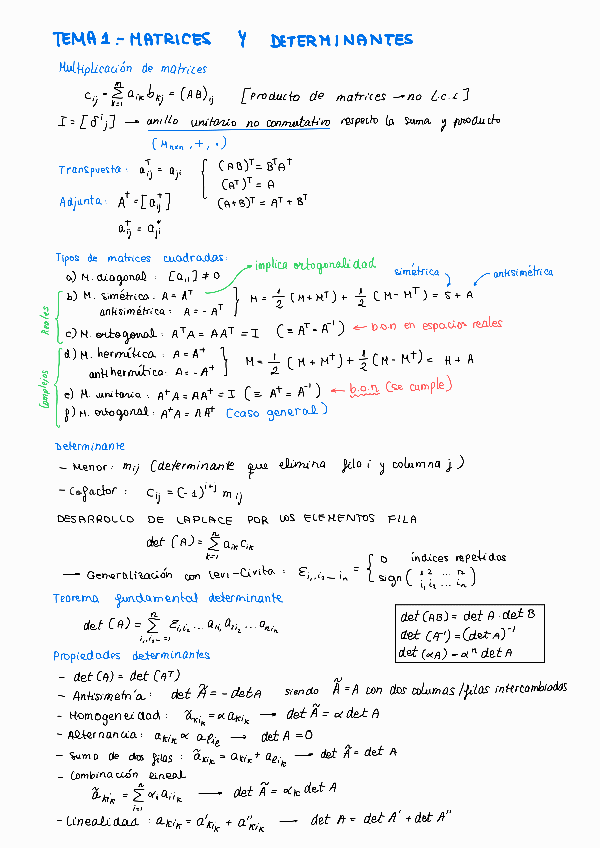 TEMA 1.- MATRICES Y DETERMINANTES
Multiplicación de matrices
c_ij = Σ_{k=1}^{n} a_ik b_kj = (AB)_ij [Producto de matrices → no L.c.c]
I = [δ^i_j] → anillo unitario no conmutativo respecto la suma y producto
(M_nxn, +, ·)
Transpuesta: a^T_ij = a_ji { (AB)^T = B^T A^T
(A^T)^T = A
Adjunta: A^† = [a^†_ij] (A+B)^T = A^T + B^T
a^†_ij = a^*_ji
Tipos de matrices cuadradas:
implica ortogonalidad
simétrica
antisimétrica
a) M. diagonal: [a_ii] ≠ 0
Reales
b) M. simétrica: A = A^T
antisimétrica: A = - A^T } M = 1/2 (M+M^T) + 1/2 (M-M^T) = S + A
c) M. ortogonal: A^T A = A A^T = I (≡ A^T = A^-1) ← b.o.n en espacios reales
Complejos
d) M. hermética: A = A^†
antihermética: A = - A^† } M = 1/2 (M + M^†) + 1/2 (M - M^†) = H + A
e) M. unitaria: A^† A = A A^† = I (≡ A^† = A^-1) ← b.o.n (se cumple)
f) M. ortogonal: A^† A = A A^† (caso general)
Determinante
- Menor: m_ij (determinante que elimina fila i y columna j)
- Cofactor: c_ij = (-1)^{i+j} m_ij
DESARROLLO DE LAPLACE POR LOS ELEMENTOS FILA
det (A) = Σ_{k=1}^{n} a_ik c_ik
→ Generalización con Levi-Civita: ε_{i1 i2 ... in} = { 0 índices repetidos
sign( 1 2 ... n / i1 i2 ... in )
Teorema fundamental determinante
det (A) = Σ_{i1,i2...=1}^{n} ε_{i1 i2} ... a_{1i1} a_{2i2} ... a_{nin}
det (AB) = det A · det B
det (A^-1) = (det A)^-1
det (αA) = α^n det A
Propiedades determinantes
- det (A) = det (A^T)
- Antisimetría: det Ã = - det A siendo Ã = A con dos columas/filas intercambiadas
- Homogeneidad: ã_{kik} = α a_{kik} → det Ã = α det A
- Alternancia: a_{kik} ∝ a_{lil} → det A = 0
- Suma de dos filas: ã_{kik} = a_{kik} + a_{lik} → det Ã = det A
- Combinación lineal
ã_{kik} = Σ_{i=1}^{n} α_i a_{iik} → det Ã = α_k det A
- Linealidad: a_{kik} = a'_{kik} + a''_{kik} → det A = det A' + det A''